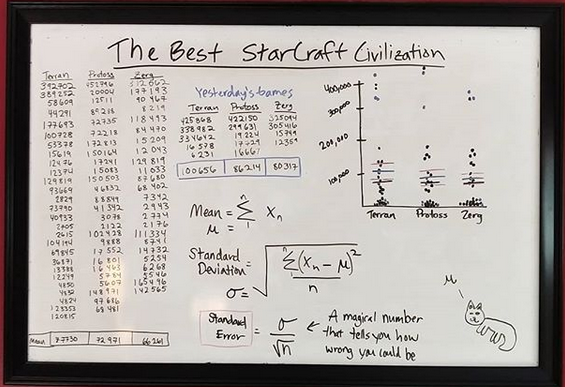 The Best StarCraft Civilization
Terran Protoss Zerg
392702 452796 312662
389252 20004 177193
58609 12511 90467
44291 80218 8219
177693 72735 118493
100728 72218 84470
53378 172813 15209
15619 150164 12043
12476 17241 129819
12374 15083 11033
129819 150503 87680
93669 46832 68402
2829 88849 7342
73790 41392 2943
40933 3078 2774
2605 2122 2176
2615 102428 111334
104194 9888 8741
69845 17552 14732
36871 16801 5254
13388 16463 6268
12249 5784 5546
4850 5607 165496
4832 148971 142565
4824 97686
123353 68481
120815
Mean 72971 66261
Yesterday's Games
Terran Protoss Zerg
425868 422150 325094
338982 299631 305416
334642 19224 15799
16578 12359
6231 16667
100656 86214 80317
400,000
300,000
200,000
100,000
Terran Protoss Zerg
Mean = Σ Xn
μ =
n
1
Standard
Deviation =
σ = √ Σ (Xn - μ)²
n
1
n
Standard
Error = σ
√n
← A magical number
that tells you how
wrong you could be
μ